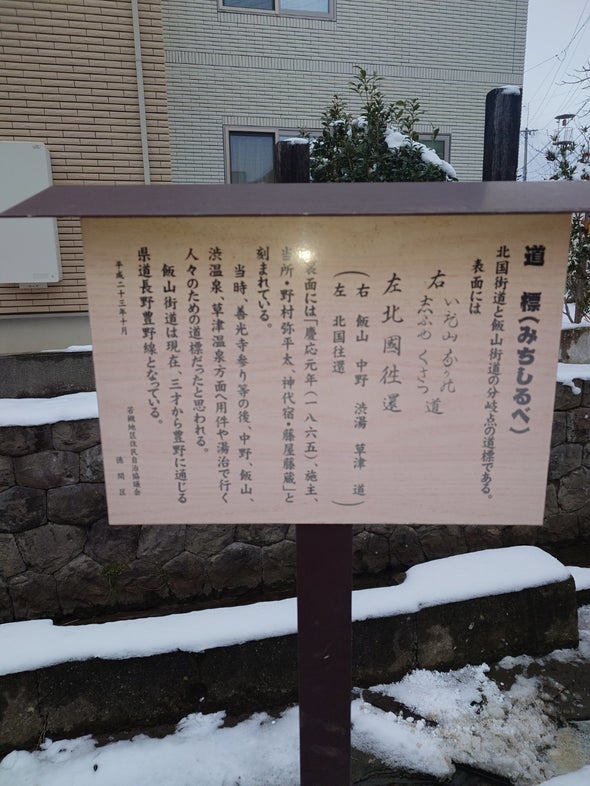 道標(みちしるべ)
北国街道と飯山街道の分岐点の道標である。
表面には
右 いひ山 志ぶゆ くさつ 道
左 北國往還
(右 飯山 中野 渋湯 草津 道)
(左 北国往還)
表面には「慶応元年(一八六五)、施主、
当所・野村弥平太、神代宿・藤屋藤蔵」と
刻まれている。
当時、善光寺参り等の後、中野、飯山、
渋温泉、草津温泉方面へ用件や湯治で行く
人々のための道標だったと思われる。
飯山街道は現在、三才から豊野に通じる
県道長野豊野線となっている。
平成二十三年十月
若槻地区住民自治協議会
徳間区